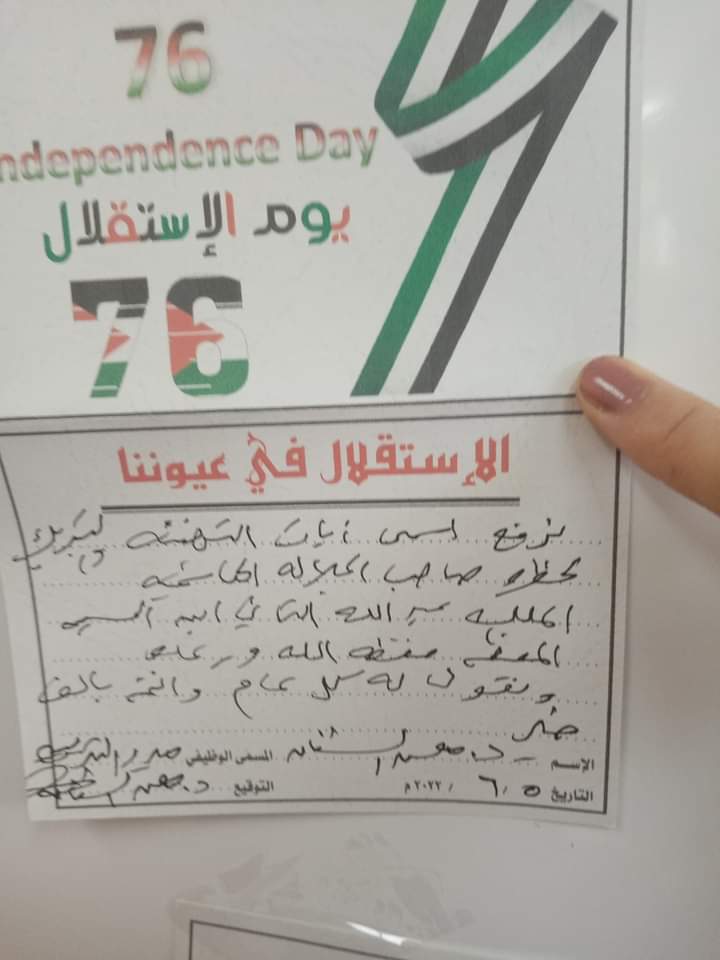 76
ndependence Day
يوم الإستقلال
76
الإستقلال في عيوننا
نرفع اسمى آيات التهنئة والتبريك
لحضرة صاحب الجلالة الهاشمية
الملك عبد الله الثاني ابن الحسين
المعظم حفظه الله ورعاه
ونقول له كل عام وانتم بالف
خير
الإسم د. المسمى الوظيفي مدير التربية
التاريخ ٥ / ٦ / ٢٠٢٢م التوقيع د.